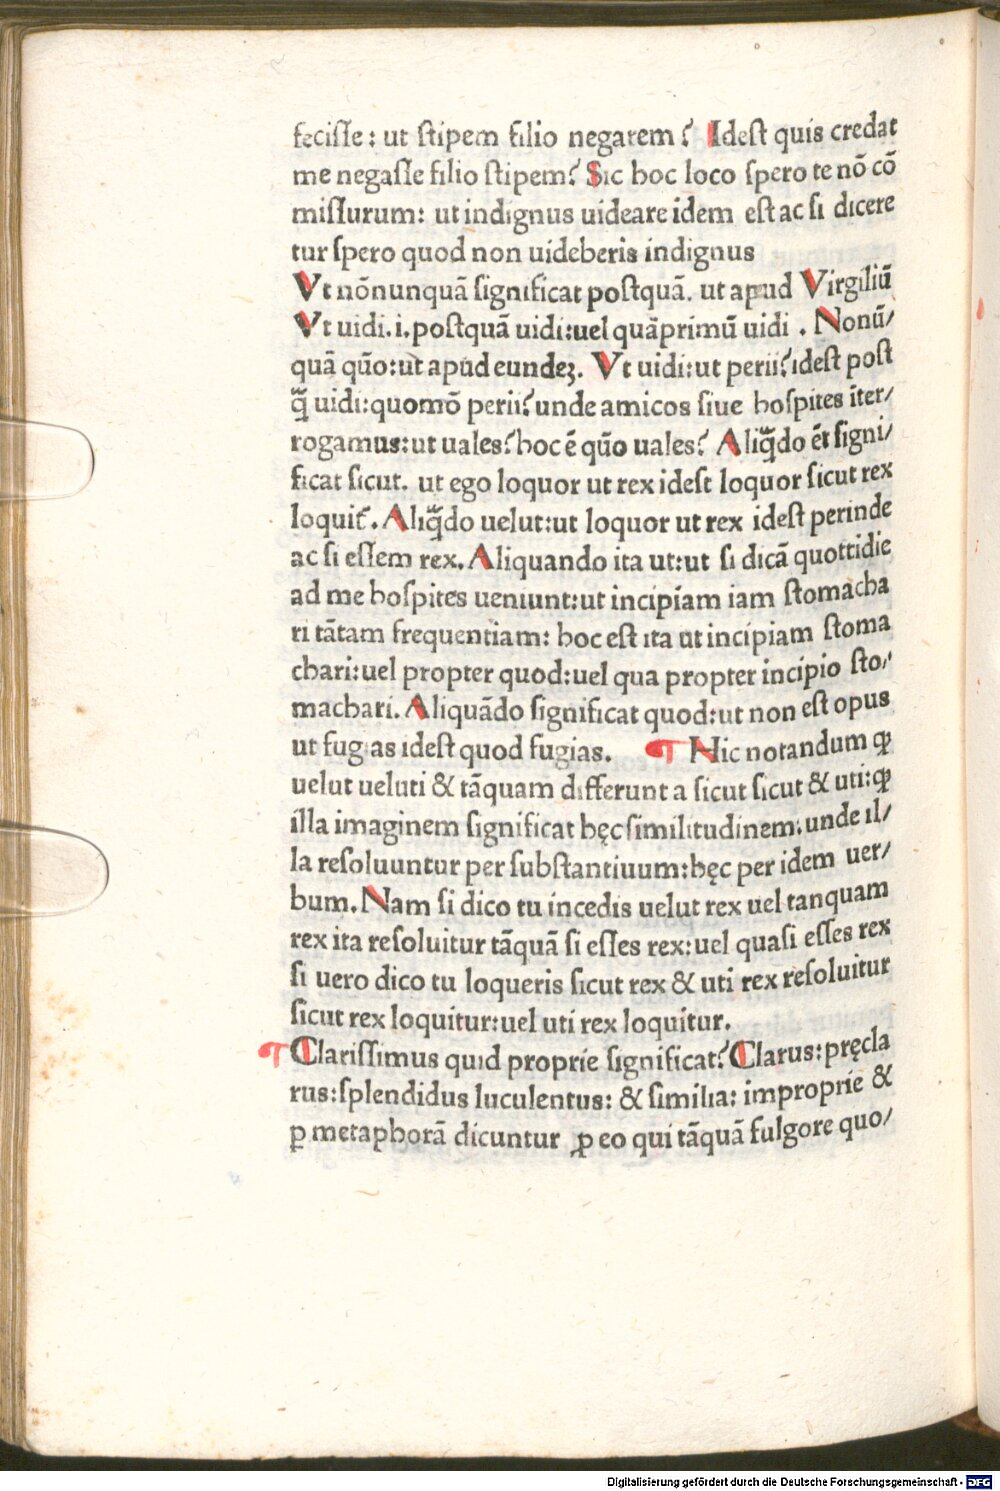 feciſſe: ut ſtipem filio negarem? Ideſt quis credat
me negaſſe filio ſtipem? Sic hoc loco ſpero te nō cō
miſſurum: ut indignus uideare idem eſt ac ſi dicere
tur ſpero quod non uideberis indignus
Vt nōnunquā ſignificat poſtquā. ut apud Virgiliū
Vt uidi. i. poſtquā uidi: uel quāprimū uidi . Nonū/
quā qūo: ut apud eundeꝫ. Vt uidi: ut perii? ideſt poſt
q̄̃ uidi: quomō perii? unde amicos ſiue hoſpites īter/
rogamus: ut uales? hoc ē qūo uales? Aliq̄̃do ēt ſigni/
ficat ſicut. ut ego loquor ut rex ideſt loquor ſicut rex
loquit᷑. Aliq̄̃do uelut: ut loquor ut rex ideſt perinde
ac ſi eſſem rex. Aliquando ita ut: ut ſi dicā quottidie
ad me hoſpites ueniunt: ut incipiam iam ſtomacha
ri tātam frequentiam: hoc eſt ita ut incipiam ſtoma
chari: uel propter quod: uel qua propter incipio ſto/
machari. Aliquādo ſignificat quod: ut non eſt opus
ut fugias ideſt quod fugias. ¶ Hic notandum ꝙ
uelut ueluti & tāquam differunt a ſicut ſicut & uti: ꝙ
illa imaginem ſignificat hęc ſimilitudinem: unde il/
la reſoluuntur per ſubſtantiuum: hęc per idem uer/
bum. Nam ſi dico tu incedis uelut rex uel tanquam
rex ita reſoluitur tāquā ſi eſſes rex: uel quaſi eſſes rex
ſi uero dico tu loqueris ſicut rex & uti rex reſoluitur
ſicut rex loquitur: uel uti rex loquitur.
¶ Clariſſimus quid proprie ſignificat? Clarus: pręcla
rus: ſplendidus luculentus: & ſimilia: improprie &
ꝑ metaphorā dicuntur ꝓ eo qui tāquā fulgore quo/
Digitalisierung gefördert durch die Deutsche Forschungsgemeinschaft - DFG